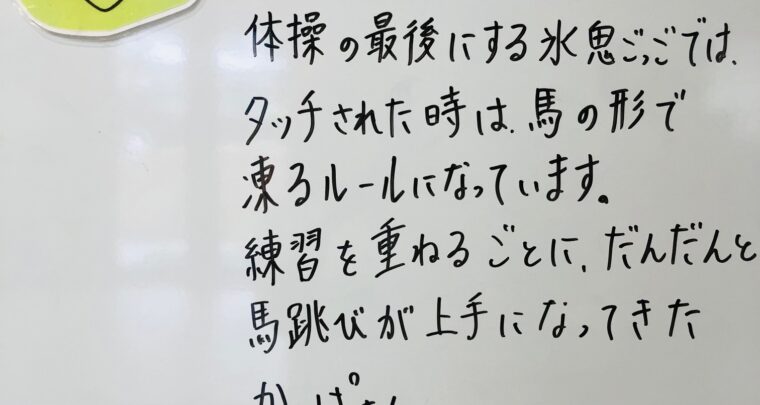 体操の最後にする氷鬼ごっこでは、
タッチされた時は、馬の形で
凍るルールになっています。
練習を重ねるごとに、だんだんと
馬跳びが上手になってきた